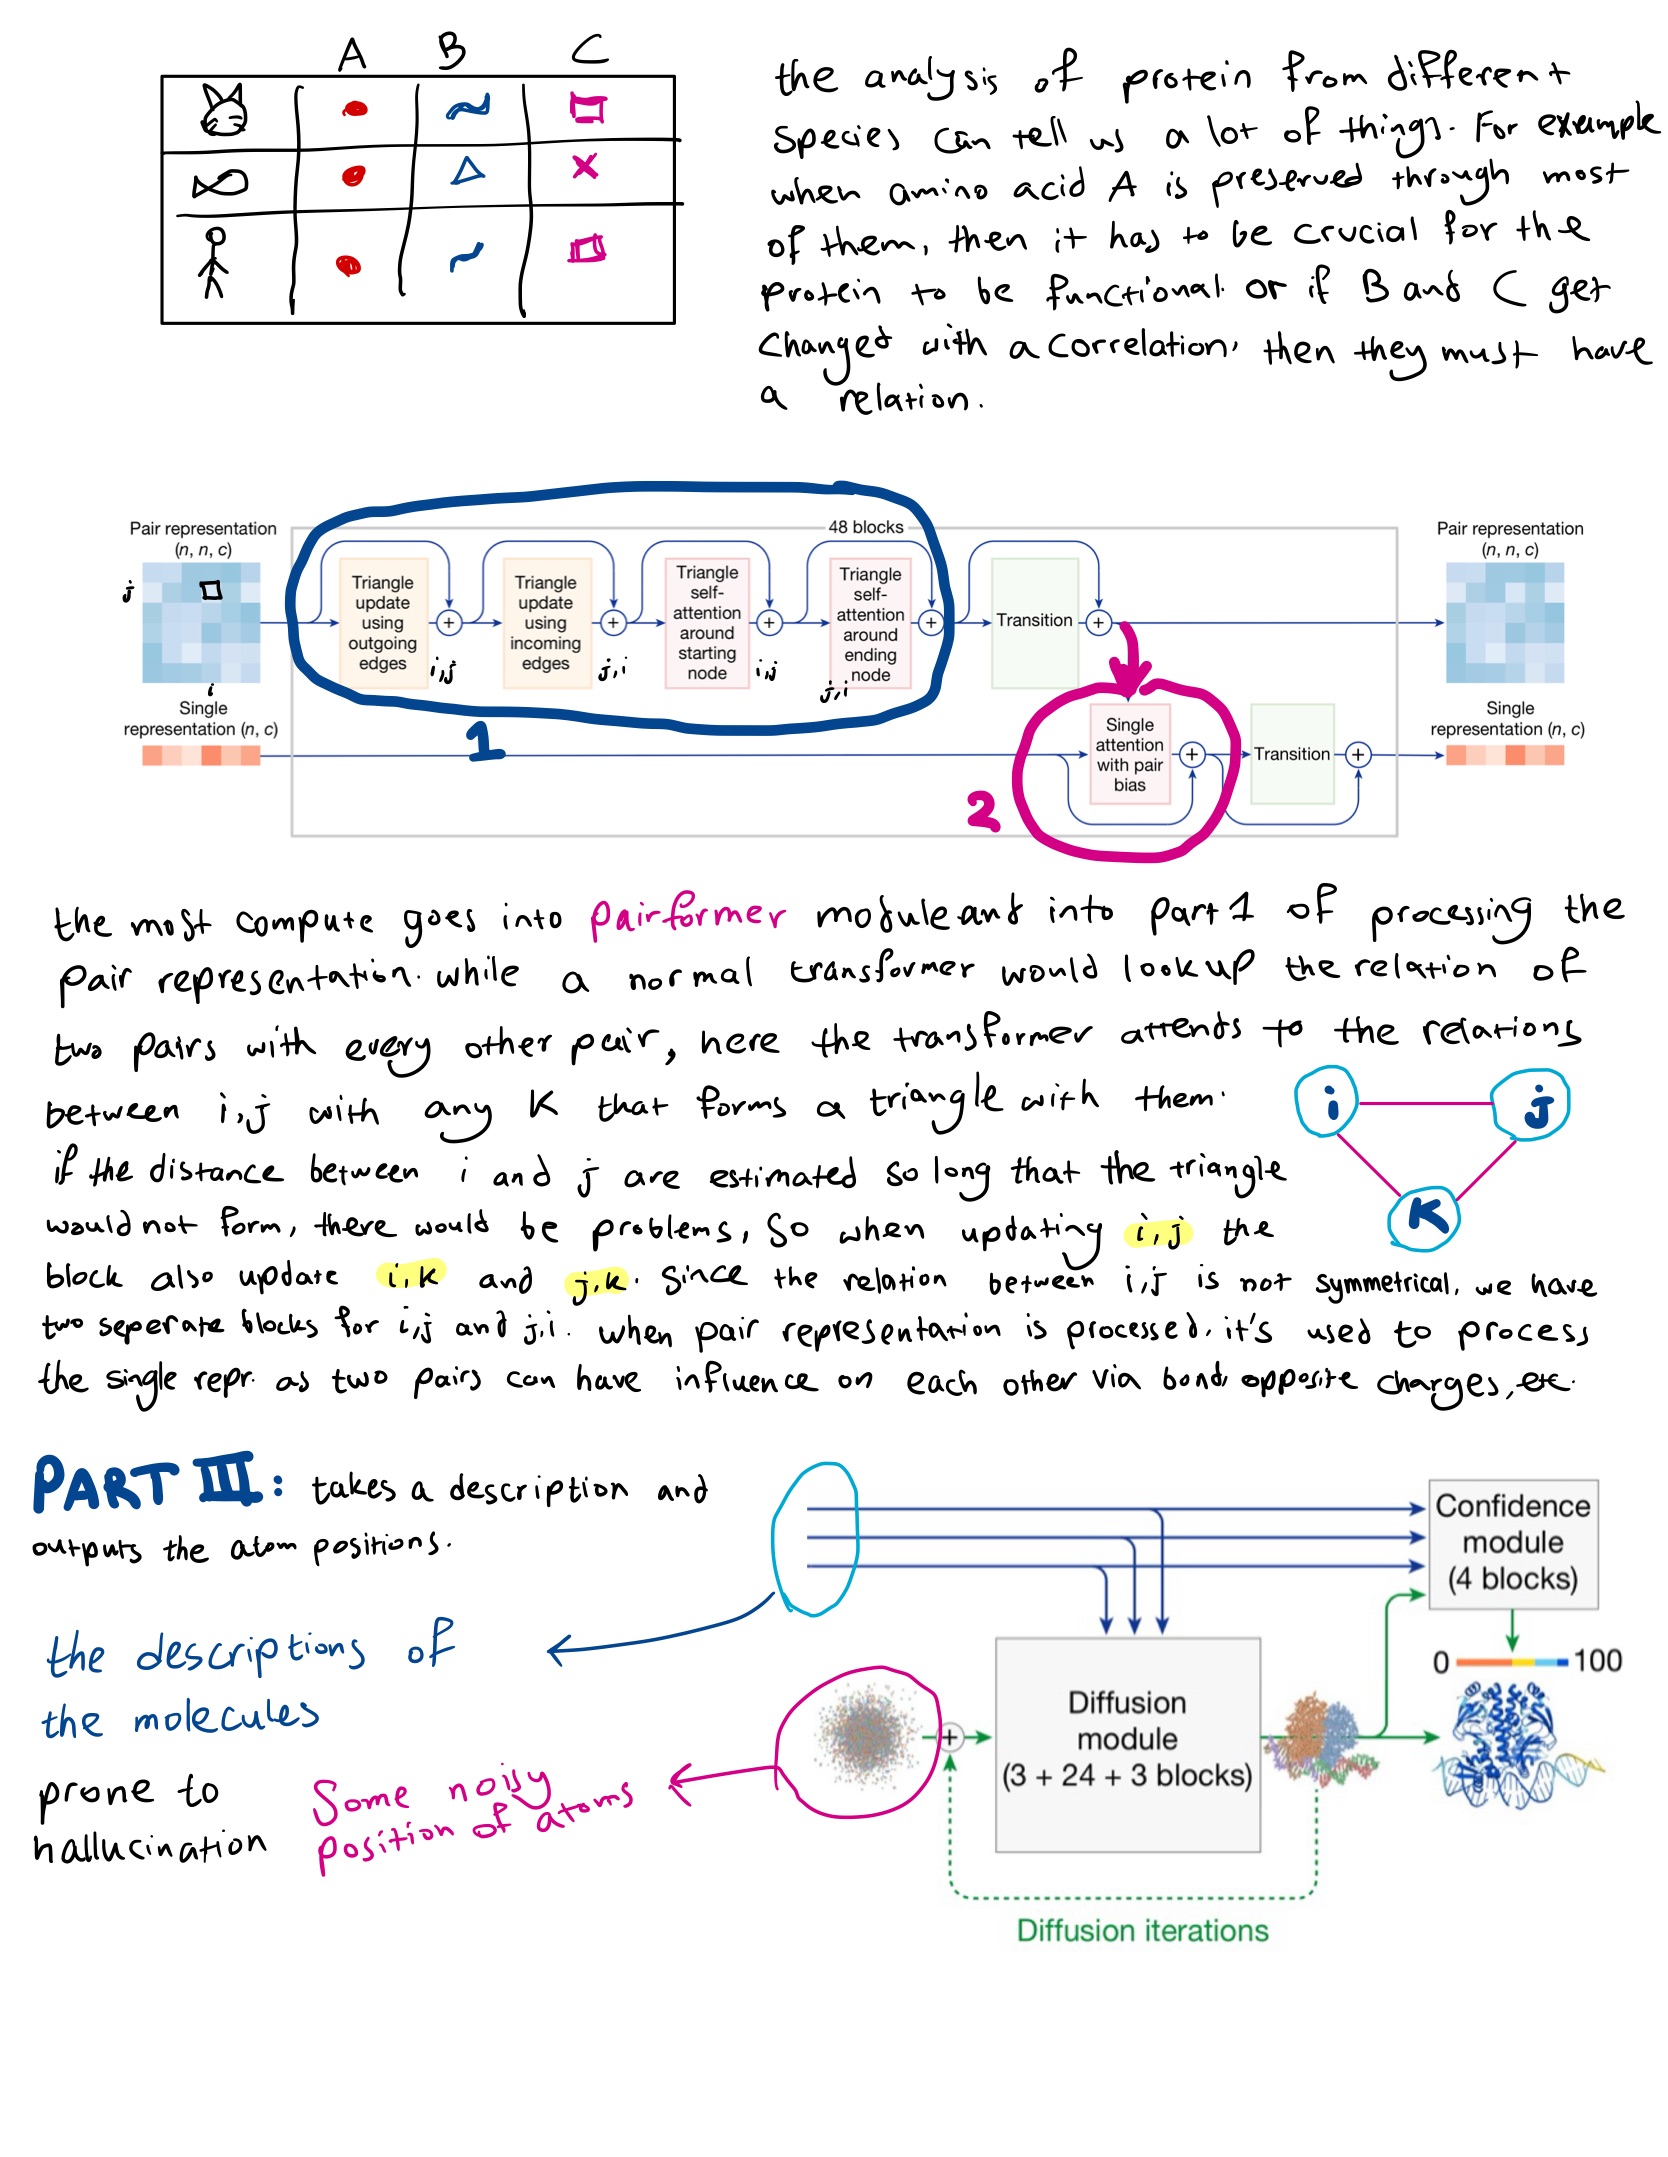 A B C
the analysis of protein from different
species can tell us a lot of things. For example
when amino acid A is preserved through most
of them, then it has to be crucial for the
protein to be functional. or if B and C get
changed with a correlation, then they must have
a relation.
48 blocks
Pair representation
(n, n, c)
j
i
Single
representation (n, c)
Triangle
update
using
outgoing
edges
i,j
Triangle
update
using
incoming
edges
j,i
Triangle
self-
attention
around
starting
node
i,j
Triangle
self-
attention
around
ending
node
j,i
Transition
1
2
Single
attention
with pair
bias
Transition
Pair representation
(n, n, c)
Single
representation (n, c)
the most compute goes into pairformer module and into part 1 of processing the
pair representation. while a normal transformer would look up the relation of
two pairs with every other pair, here the transformer attends to the relations
between i,j with any K that forms a triangle with them.
i j
K
if the distance between i and j are estimated so long that the triangle
would not form, there would be problems, so when updating i,j the
block also update i,k and j,k. since the relation between i,j is not symmetrical, we have
two seperate blocks for i,j and j,i. when pair representation is processed, it's used to process
the single repr. as two pairs can have influence on each other via bond, opposite charges, etc.
PART III: takes a description and
outputs the atom positions.
the descriptions of
the molecules
prone to
hallucination
Some noisy
position of atoms
Confidence
module
(4 blocks)
0 100
Diffusion
module
(3 + 24 + 3 blocks)
Diffusion iterations